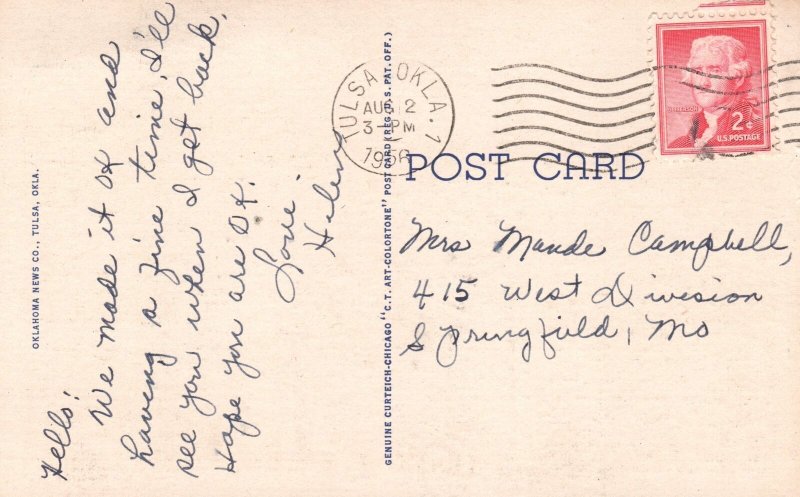 Hello!
We made it OK and
having a fine time, I'll
see you when I get back.
Hope you are OK.
Love.
Helen
OKLAHOMA NEWS CO., TULSA, OKLA.
GENUINE CURTEICH-CHICAGO "C.T. ART-COLORTONE" POST CARD (REG. U.S. PAT. OFF.)
TULSA, OKLA. 1
AUG 2
3-PM
1956
JEFFERSON
2¢
U.S. POSTAGE
POST CARD
Mrs Maude Campbell,
415 West Division
Springfield, Mo